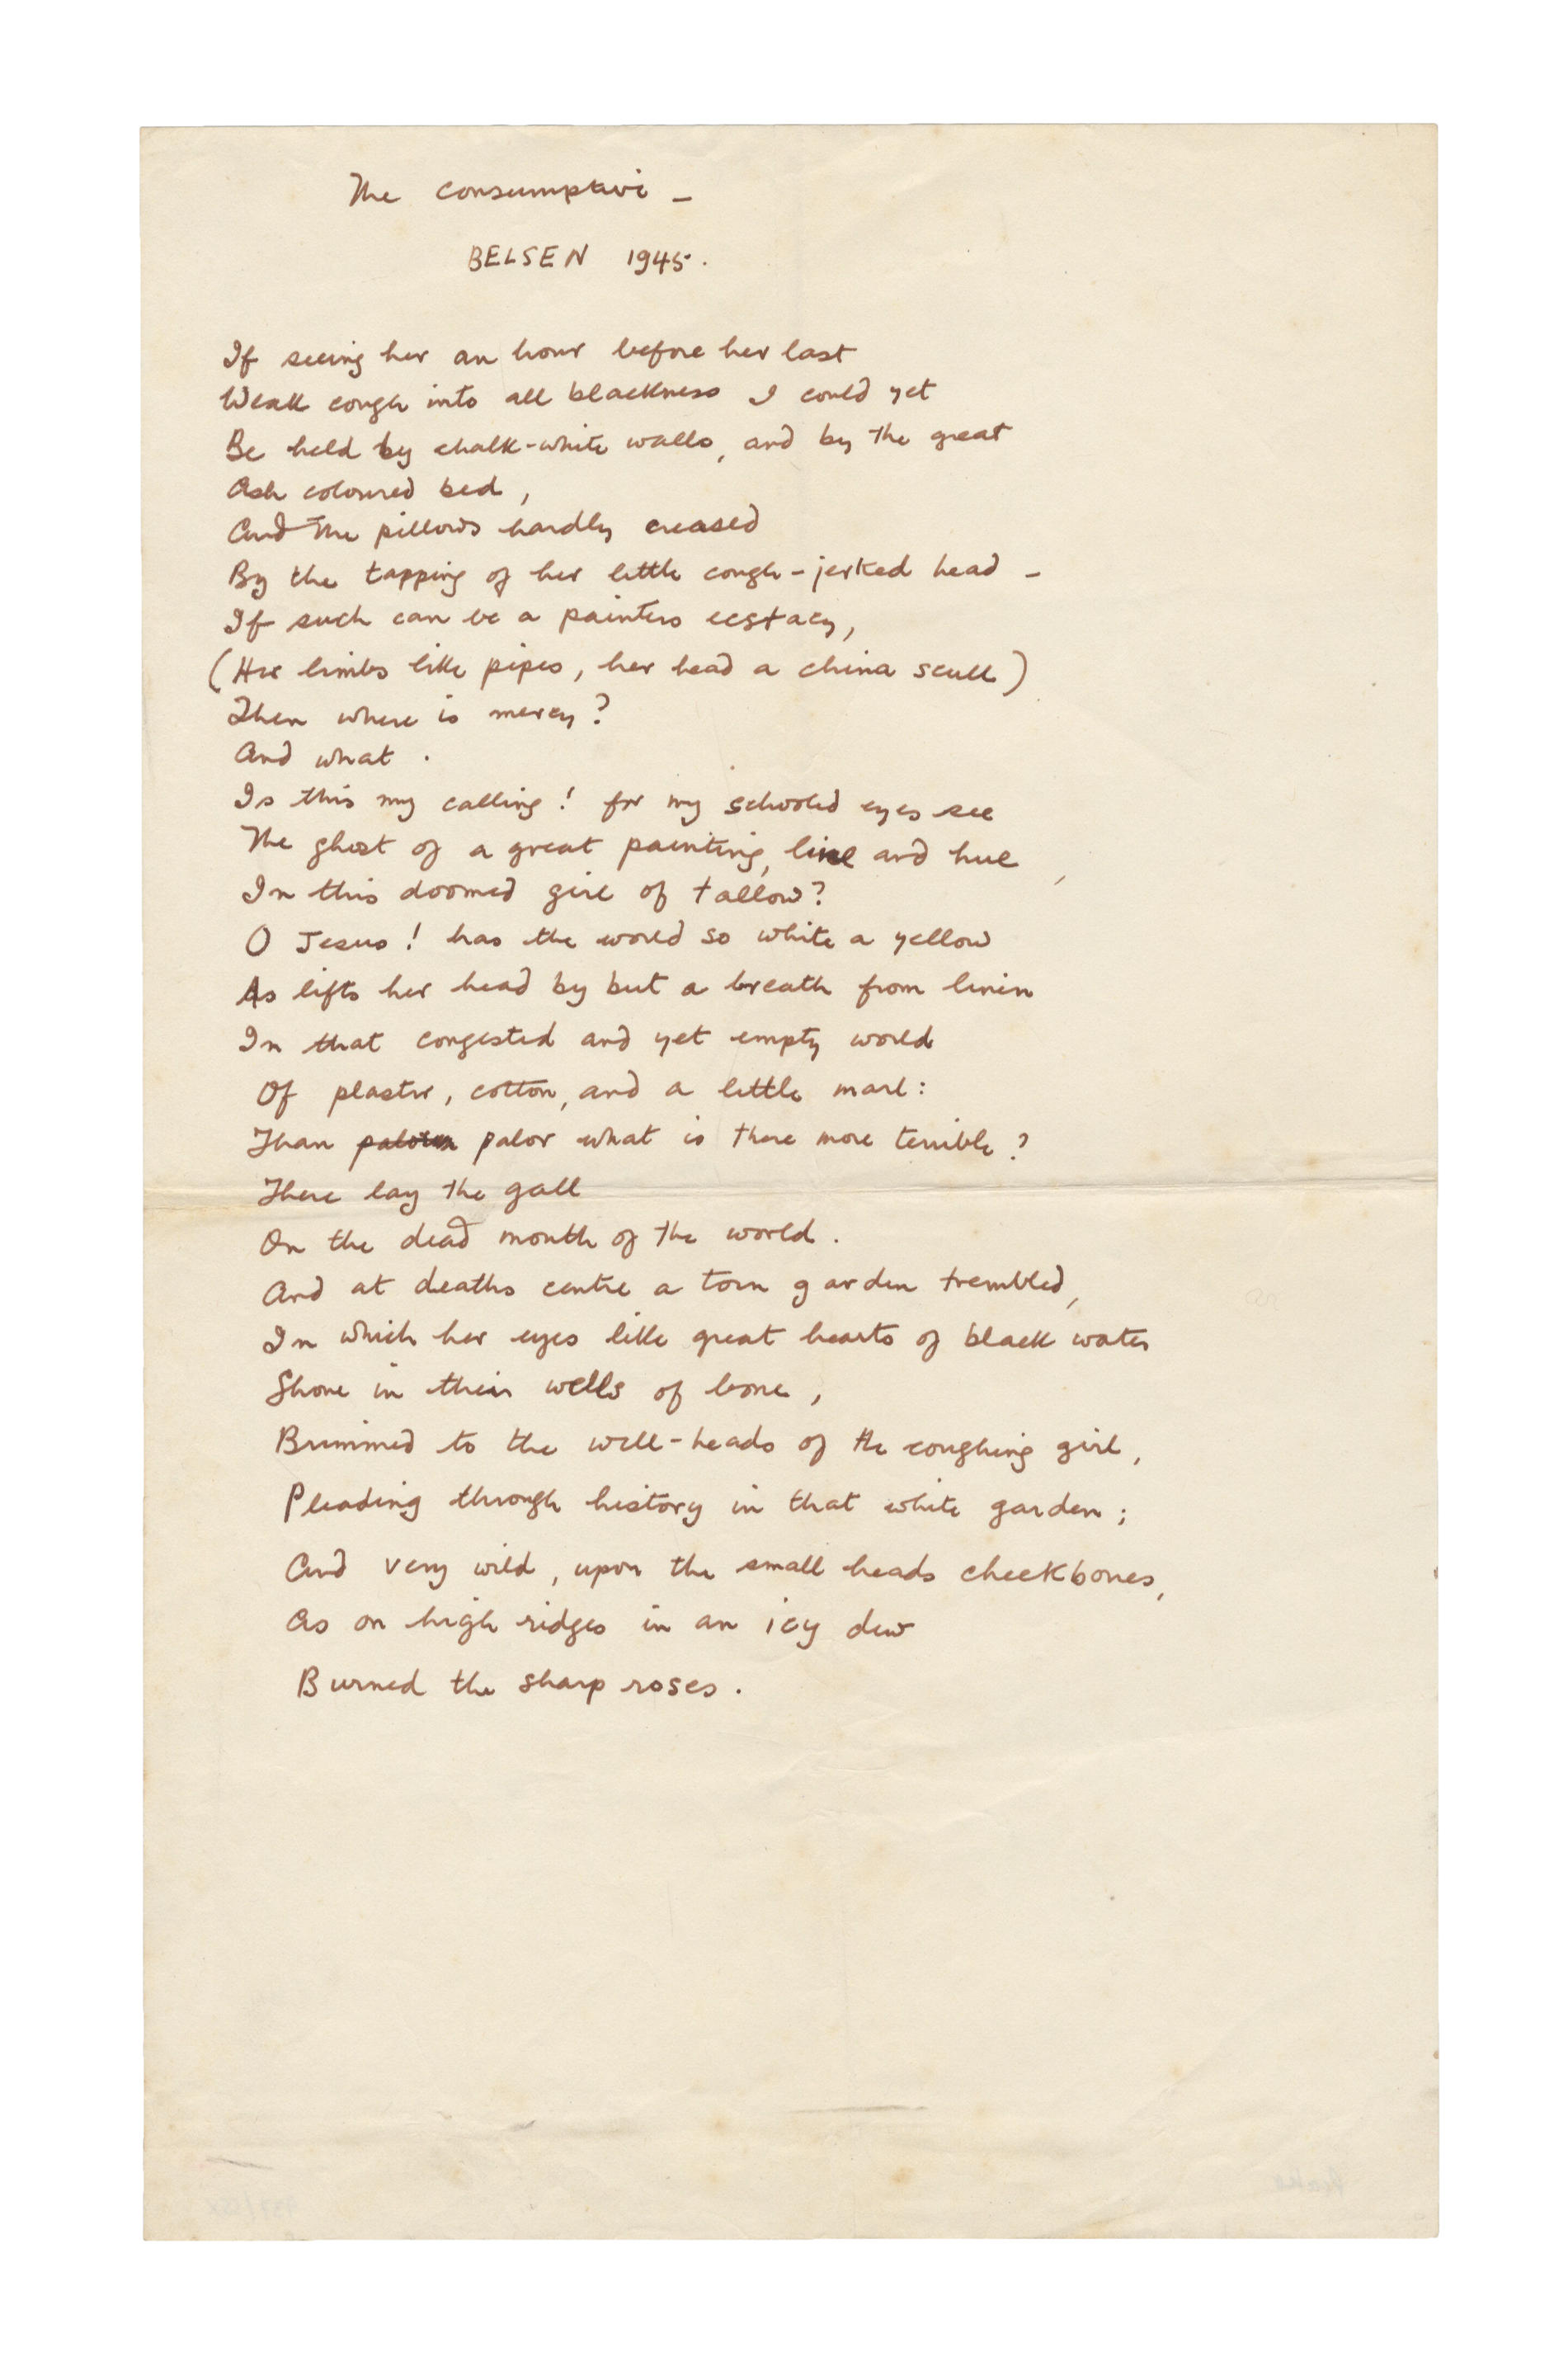 The Consumptive –
BELSEN 1945.
If seeing her an hour before her last
Weak cough into all blackness I could yet
Be held by chalk-white walls, and by the great
Ash coloured bed,
And the pillows hardly creased
By the tapping of her little cough-jerked head –
If such can be a painters ecstacy,
(Her limbs like pipes, her head a china scull)
Then where is mercy?
And what .
Is this my calling! for my schooled eyes see
The ghost of a great painting, line and hue,
In this doomed girl of tallow?
O Jesus! has the world so white a yellow
As lifts her head by but a breath from linin
In that congested and yet empty world
Of plaster, cotton, and a little marl:
Than palor what is there more terrible?
There lay the gall
On the dead mouth of the world.
And at deaths centre a torn garden trembled,
In which her eyes like great hearts of black water
Shone in their wells of bone,
Brimmed to the well-heads of the coughing girl,
Pleading through history in that white garden;
And very wild, upon the small heads cheekbones,
As on high ridges in an icy dew
Burned the sharp roses.